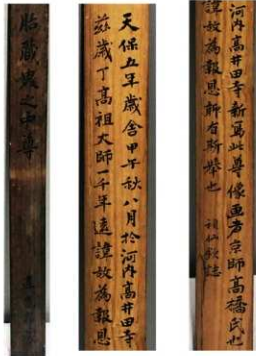 胎蔵界之中尊
天保五年歳舎甲午秋八月於河内高井田寺
茲歳丁高祖大師一千年遠諱故為報恩
河内高井田寺新寫此尊像画者京師高橋氏也
諱故為報恩所有斯挙也